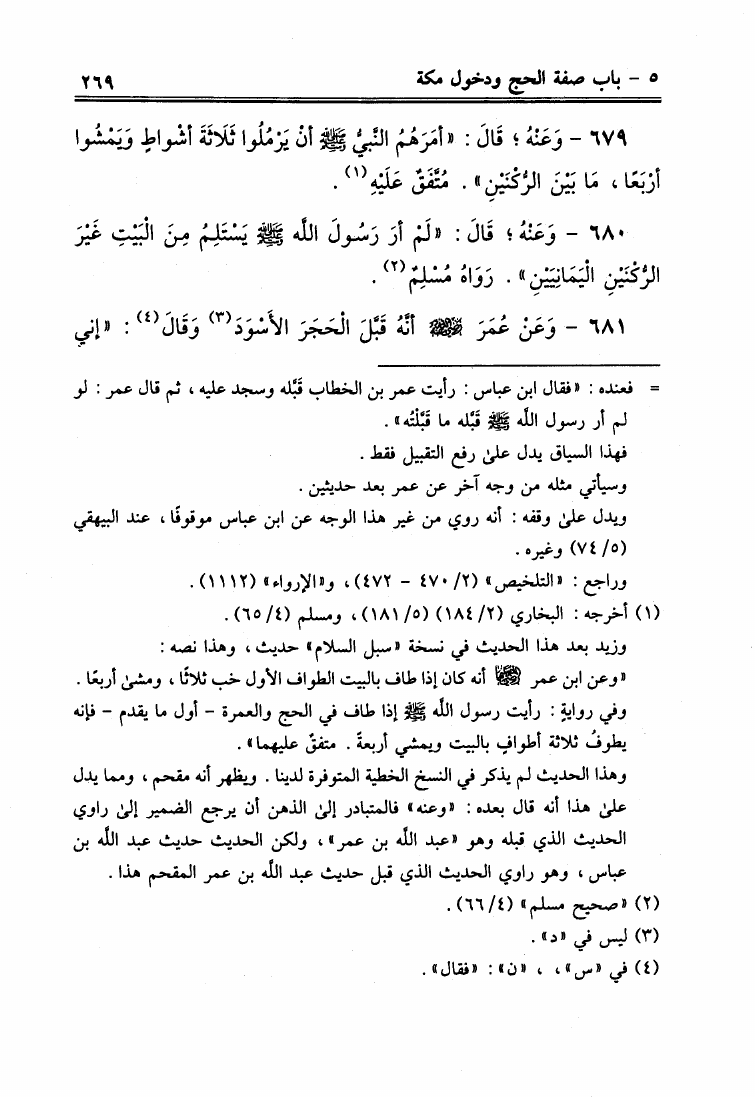 ٥ - باب صفة الحج ودخول مكة ٢٦٩
٦٧٩ - وَعَنْهُ ؛ قَالَ : «أَمَرَهُمُ النَّبِيُّ ﷺ أَنْ يَرْمُلُوا ثَلَاثَةَ أَشْوَاطٍ وَيَمْشُوا
أَرْبَعًا ، مَا بَيْنَ الرُّكْنَيْنِ» . مُتَّفَقٌ عَلَيْهِ(١) .
٦٨٠ - وَعَنْهُ ؛ قَالَ : «لَمْ أَرَ رَسُولَ اللَّه ﷺ يَسْتَلِمُ مِنَ الْبَيْتِ غَيْرَ
الرُّكْنَيْنِ الْيَمَانِيَيْنِ» . رَوَاهُ مُسْلِمٌ(٢) .
٦٨١ - وَعَنْ عُمَرَ رضي الله عنه أَنَّهُ قَبَّلَ الْحَجَرَ الأَسْوَدَ(٣) وَقَالَ(٤) : «إِني
= فعنده : «فقال ابن عباس : رأيت عمر بن الخطاب قَبَّله وسجد عليه ، ثم قال عمر : لو
لم أر رسول اللَّه ﷺ قَبَّله ما قَبَّلْتُه» .
فهذا السياق يدل علىٰ رفع التقبيل فقط .
وسيأتي مثله من وجه آخر عن عمر بعد حديثين .
ويدل علىٰ وقفه : أنه روي من غير هذا الوجه عن ابن عباس موقوفًا ، عند البيهقي
(٥/ ٧٤) وغيره .
وراجع : «التلخيص» (٢/ ٤٧٠ - ٤٧٢) ، و«الإرواء» (١١١٢) .
(١) أخرجه : البخاري (٢/ ١٨٤) (٥/ ١٨١) ، ومسلم (٤/ ٦٥) .
وزيد بعد هذا الحديث في نسخة «سبل السلام» حديث ، وهذا نصه :
«وعن ابن عمر رضي الله عنهما أنه كان إذا طاف بالبيت الطواف الأول خب ثلاثًا ، ومشىٰ أربعًا .
وفي روايةٍ : رأيت رسول اللَّه ﷺ إذا طاف في الحج والعمرة - أول ما يقدم - فإنه
يطوفُ ثلاثة أطوافٍ بالبيت ويمشي أربعةً . متفقٌ عليهما» .
وهذا الحديث لم يذكر في النسخ الخطية المتوفرة لدينا . ويظهر أنه مقحم ، ومما يدل
علىٰ هذا أنه قال بعده : «وعنه» فالمتبادر إلىٰ الذهن أن يرجع الضمير إلىٰ راوي
الحديث الذي قبله وهو «عبد اللَّه بن عمر» ، ولكن الحديث حديث عبد اللَّه بن
عباس ، وهو راوي الحديث الذي قبل حديث عبد اللَّه بن عمر المقحم هذا .
(٢) «صحيح مسلم» (٤/ ٦٦) .
(٣) ليس في «د» .
(٤) في «س» ، ، «ن» : «فقال» .